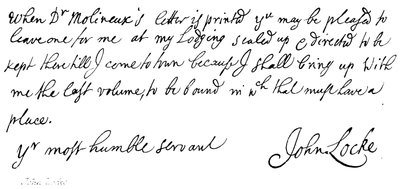 When Dr Molineux's letter is printed you may be pleased to
leave one for me at my Lodging sealed up & directed to be
kept there till I come to town because I shall bring up with
me the last volume, to be bound in wch that must have a
place.
Yr most humble servant
John Locke
John Locke